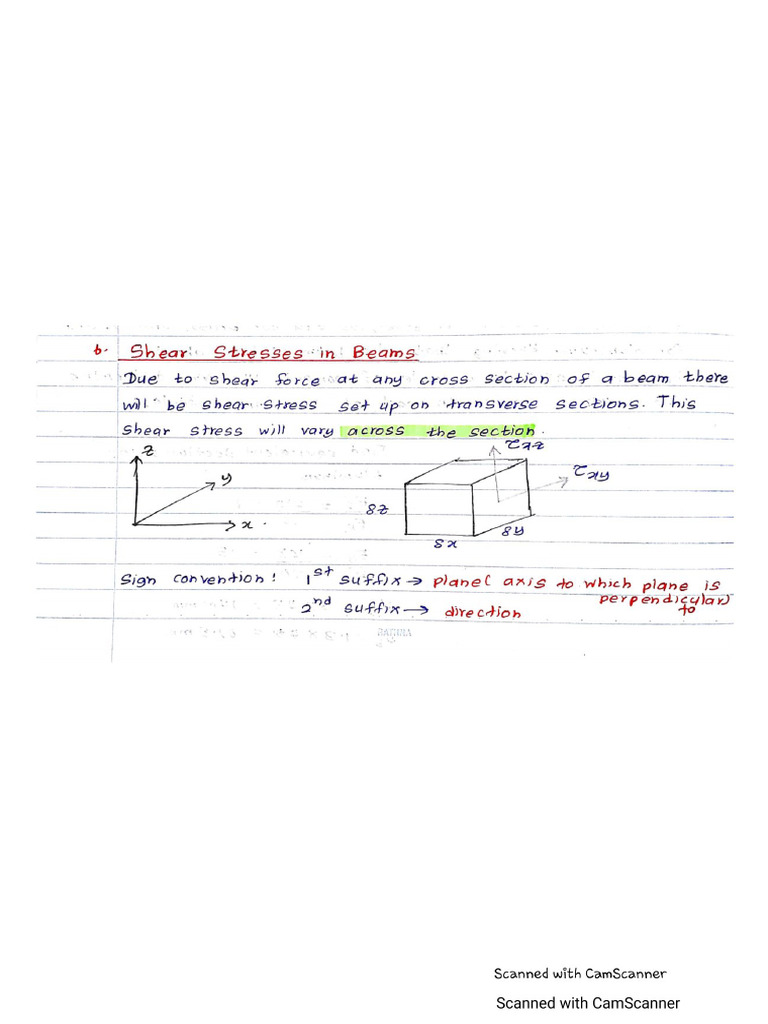 6. Shear Stresses in Beams
Due to shear force at any cross section of a beam there
will be shear stress set up on transverse sections. This
shear stress will vary across the section.
z
τxz
y
τxy
δz
x
δy
δx
Sign convention: 1st suffix → plane( axis to which plane is
perpendicular)
to
2nd suffix → direction
Scanned with CamScanner
Scanned with CamScanner